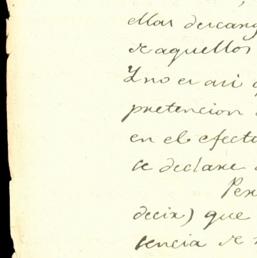 ellas descan
de aquellos
Y no es asi q
pretencion
en el efect
se declare
Per
decir) que
tencia de